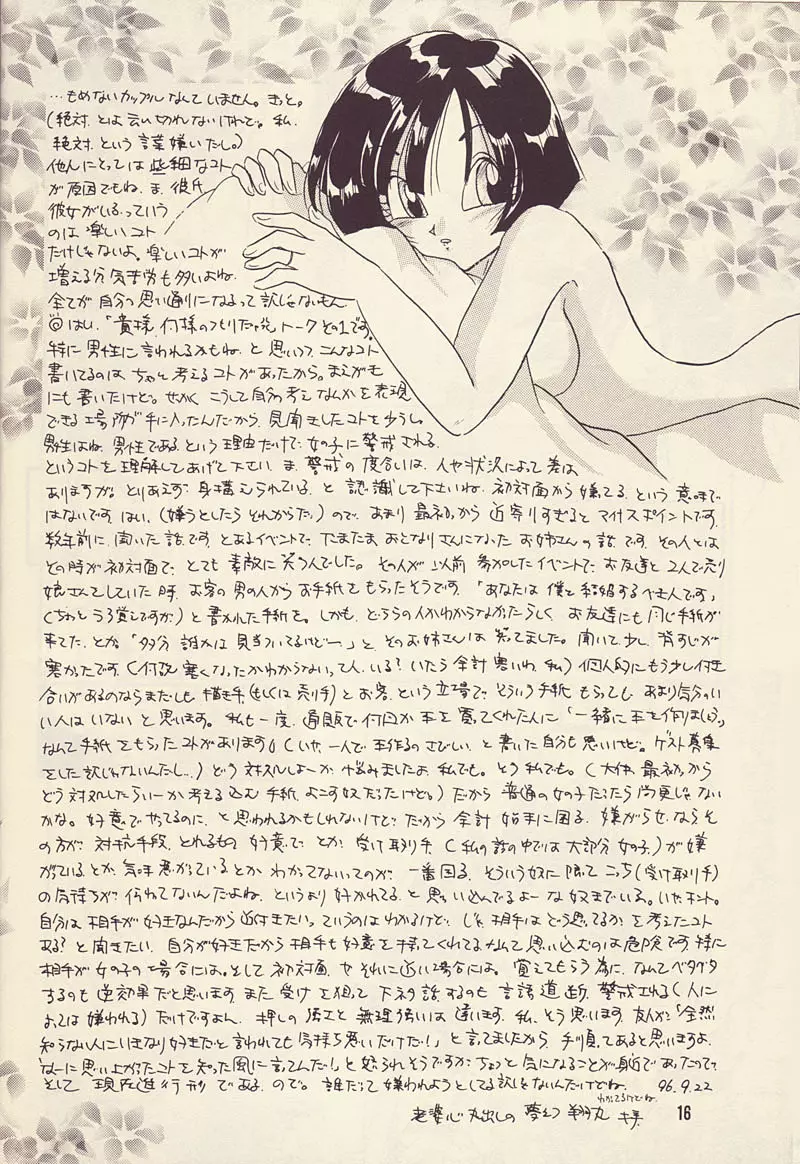 …もめないカップルなんていません。きっと。
(絶対、とは云い切れないけれど。私、
絶対、という言葉嫌いだし。)
他人にとっては些細なコト
が原因でもね。ま、彼氏
彼女がいるっていう
のは楽しいコト
だけじゃないよ。楽しいコトが
増える分気苦労も多いよね。
全てが自分の思い通りになるって訳じゃないもん
はい、「貴様、何様のつもりだ トークその1です。
特に男性に言われるかもね、と思いつつ、こんなコト
書いてるのはちゃんと考えるコトがあったから。まえがも
にも書いたけど。せっかくこうして自分の考えなんかを表現
できる場所が手に入ったんだから、見聞きしたコトを少し。
男性はね、男性である、という理由だけで、女の子に警戒される。
というコトを理解してあげて下さい。ま、警戒の度合いは、人や状況によって差は
ありますが。とりあえず、身構えられている、と認識して下さいね。初対面から嫌ってる、という意味で
はないです、はい。(嫌うとしたらそれからだ。)ので、あまり最初から近寄りすぎるとマイナスポイントです。
数年前に、聞いた話です。とあるイベントで、たまたまおとなりさんになったお姉さんの話です。その人とは
その時が初対面で、とても素敵に笑う人でした。その人が以前参加したイベントで、お友達と2人で売り
娘さんをしていた時、お客の男の人からお手紙をもらったそうです。「あなたは僕と結婚するべき人です」
(ちょっとうろ覚えですが)と書かれた手紙を。しかも、どちらの人かわからなかったらしく、お友達にも同じ手紙が
来てた、とか。「多分誰かは見当ついてるけどー」と、そのお姉さんは笑ってました。聞いて少し、背すじが
寒かったです。(何故寒くなったかわからないって人、いる？いたら余計寒いわ、私)個人的にもう少し付き
合いがあるのならまだしも、描き手(もしくは売り手)とお客、という立場で、そういう手紙もらっても、あまり気分のい
い人はいないと思います。私も一度、通販で何回か本を買ってくれた人に「一緒に本を作りましょう」
なんて手紙をもらったコトがあります。(いや、一人で本作るのさびしい、と書いた自分も悪いけど。ゲスト募集
をした訳じゃないんだし…)どう対処しよーか、悩みましたよ、私でも。そう私でも。(大体、最初から
どう対処したらいーか考え込む手紙、よこす奴だったけど。)だから普通の女の子だったら尚更じゃない
かな。好意でやってるのに、と思われるかもしれないけど、だから余計始末に困る。嫌がらせ、ならそ
の方が、対抗手段、とれるもの。好意で、とか、受け取り手(私の話の中では大部分女の子)が嫌
がっているとか、気味悪がっているとかわかってないってのが、一番困る。そういう奴に限ってこっち(受け取り手)
の気持ちが伝わってないんだよね。というより好かれてる、と思い込んでるよーな奴までいる。いや、ホント。
自分は相手が好きなんだから近付きたい、っていうのはわかるけど、じゃ、相手はどう思ってるかを考えたコト
ある？と聞きたい。自分が好きだから相手も好意を持ってくれてるなんて思い込むのは危険です。特に
相手が女の子の場合には。そして初対面、や、それに近い場合には。覚えてもらう為に、なんてベタベタ
するのも逆効果だと思います。また受けを狙って下ネタ話するのも言語道断。警戒される(人に
よっては嫌われる)だけですよん。押しの強さと無理強いは違います。私、そう思います。友人が「全然
知らない人にいきなり好きだと言われても気持ち悪いだけだ！」と言ってましたから、手順ってあると思いますよ。
「なーに思い上がったコトを知った風に言ってんだ！」と怒られそうですが、ちょっと気になることが身近であったので、
そして現在進行形であるので。誰だって嫌われようとしてる訳じゃないんだけどね。 96.9.22
わかってるけどね。
老婆心丸出しの 夢幻 翔丸
16